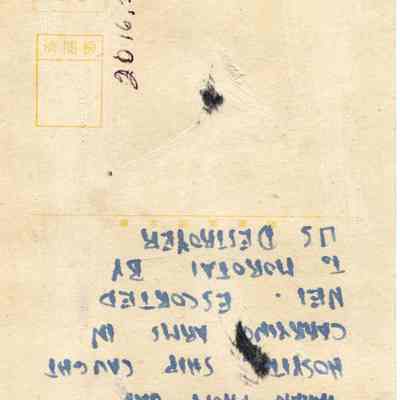 HOSPITAL SHIP CAUGHT
CARRYING ARMS IN
NEI. ESCORTED
TO MOROTAI BY
US DESTROYER
2016.
検閲済